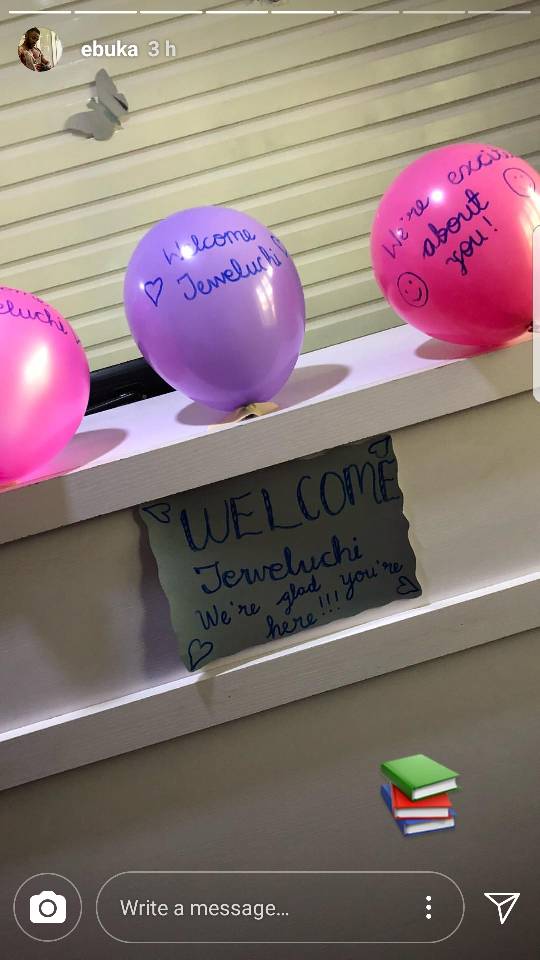 ebuka 3 h
Welcome
Jeweluchi
We're excited
about
you!
eluchi
WELCOME
Jeweluchi
We're glad you're
here!!!
Write a message...